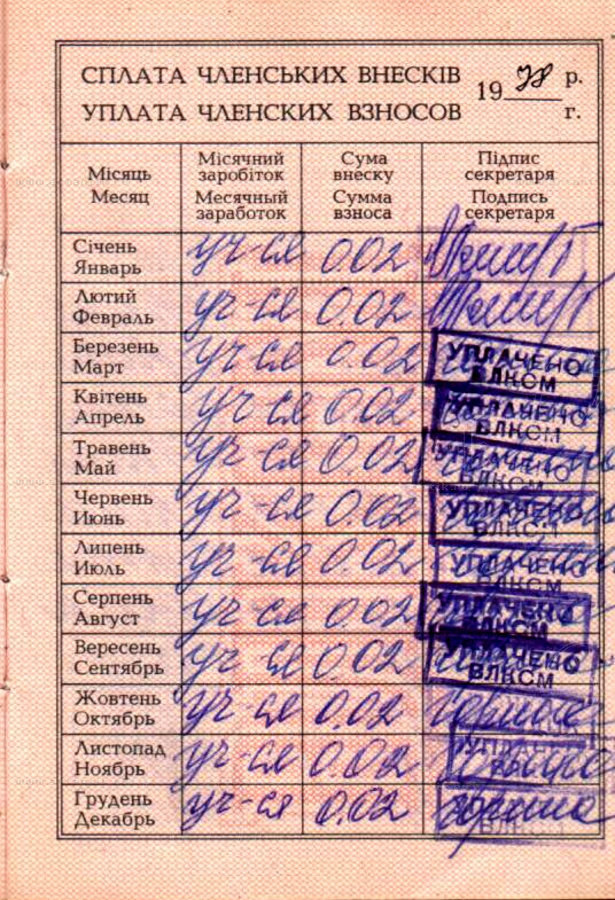 СПЛАТА ЧЛЕНСЬКИХ ВНЕСКІВ 1978 р.
УПЛАТА ЧЛЕНСКИХ ВЗНОСОВ г.
Місяць Месяц
Місячний заробіток Месячный заработок
Сума внеску Сумма взноса
Підпис секретаря Подпись секретаря
Січень
Январь уч-ся 0.02
Лютий
Февраль уч-ся 0.02
Березень
Март уч-ся 0.02 УПЛАЧЕНО ВЛКСМ
Квітень
Апрель уч-ся 0.02 УПЛАЧЕНО ВЛКСМ
Травень
Май уч-ся 0.02 УПЛАЧЕНО ВЛКСМ
Червень
Июнь уч-ся 0.02 УПЛАЧЕНО ВЛКСМ
Липень
Июль уч-ся 0.02 УПЛАЧЕНО ВЛКСМ
Серпень
Август уч-ся 0.02 УПЛАЧЕНО ВЛКСМ
Вересень
Сентябрь уч-ся 0.02 УПЛАЧЕНО ВЛКСМ
Жовтень
Октябрь уч-ся 0.02
Листопад
Ноябрь уч-ся 0.02 УПЛАЧЕНО
Грудень
Декабрь уч-ся 0.02 ВЛКСМ